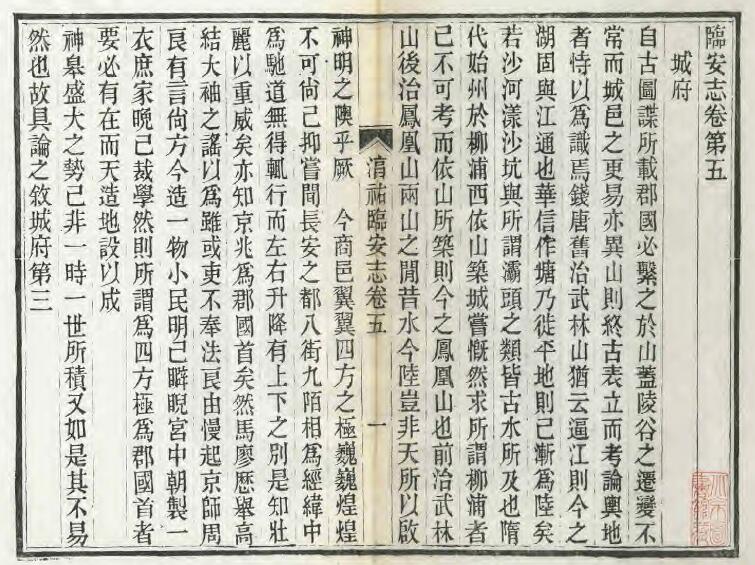 臨安志卷第五
城府
自古圖諜所載郡國必繫之於山蓋陵谷之遷變不
常而城邑之更易亦異山則終古表立而考論輿地
者恃以爲識焉錢唐舊治武林山猶云逼江則今之
湖固與江通也華信作塘乃徙平地則已漸爲陸矣
若沙河漾沙坑與所謂灞頭之類皆古水所及也隋
代始州於柳浦西依山築城嘗慨然求所謂柳浦者
已不可考而依山所築則今之鳳凰山也前治武林
山後治鳳凰山兩山之閒昔水今陸豈非天所以啟
淯祐臨安志卷五
一
神明之隩乎厥　今商邑翼翼四方之極巍巍煌煌
不可尙已抑嘗聞長安之都八街九陌相爲經緯中
爲馳道無得輒行而左右升降有上下之別是知壯
麗以重威矣亦知京兆爲郡國首矣然馬廖歷舉高
結大袖之謠以爲雖或吏不奉法良由慢起京師周
良有言尙方今造一物小民明已睥睨宮中朝製一
衣庶家晚已裁學然則所謂爲四方極爲郡國首者
要必有在而天造地設以成
神皋盛大之勢已非一時一世所積又如是其不易
然也故具論之敘城府第三